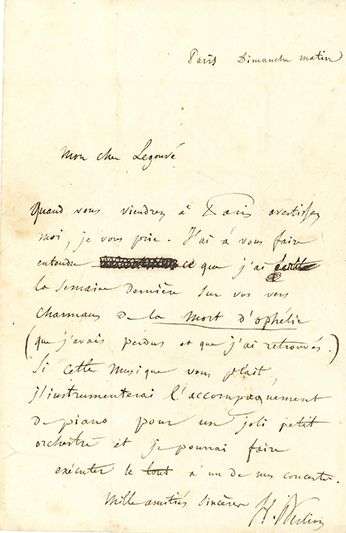 Paris Dimanche matin
Mon cher Legouvé
Quand vous viendrez à Paris avertissez
moi, je vous prie. J'ai à vous faire
entendre ce que j'ai écrit
la semaine dernière sur vos vers
charmans de la mort d'ophélie
(que j'avais perdus et que j'ai retrouvés.)
Si cette musique vous plait,
j'instrumenterai l'accompagnement
de piano pour un joli petit
orchestre et je pourrai faire
exécuter le tout à un de mes concerts.
Mille amitiés sincères
H. Berlioz